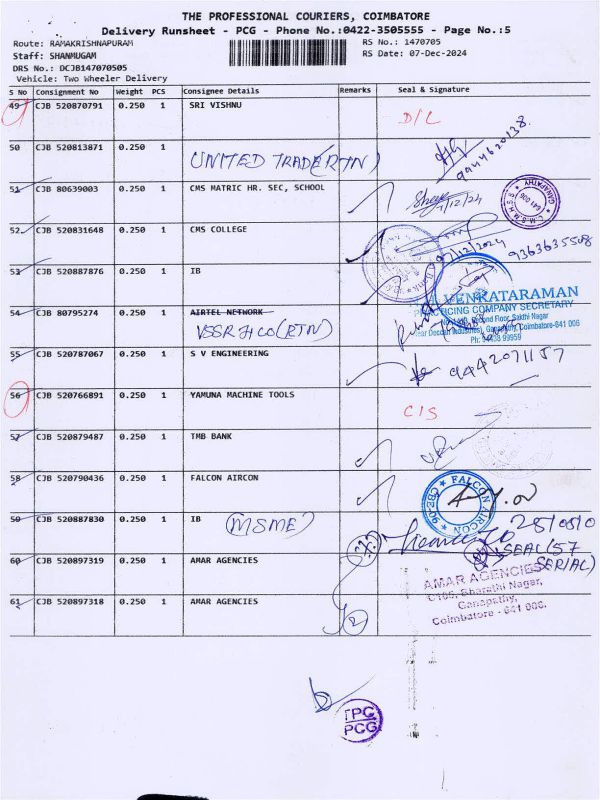 THE PROFESSIONAL COURIERS, COIMBATORE
Delivery Runsheet - PCG - Phone No.:0422-3505555 - Page No.:5
Route: RAMAKRISHNAPURAM
RS No.: 1470705
Staff: SHANMUGAM
RS Date: 07-Dec-2024
DRS No.: DCJB147070505
Vehicle: Two Wheeler Delivery
S No Consignment No Weight PCS Consignee Details Remarks Seal & Signature
49 CJB 520870791 0.250 1 SRI VISHNU D/L
50 CJB 520813871 0.250 1 UNITED TRADE(RTN)
51 CJB 80639003 0.250 1 CMS MATRIC HR. SEC, SCHOOL
GANAPATHY
641 006
C.M.S.M.H.S.S
52 CJB 520831648 0.250 1 CMS COLLEGE
9363635508
53 CJB 520887876 0.250 1 IB
VENKATARAMAN
PRACTICING COMPANY SECRETARY
Second Floor, Sakthi Nagar
Ganapathy, Coimbatore-641 006
54 CJB 80795274 0.250 1 AIRTEL NETWORK
(RTN)
55 CJB 520787067 0.250 1 S V ENGINEERING
9442071157
56 CJB 520766891 0.250 1 YAMUNA MACHINE TOOLS C/S
57 CJB 520879487 0.250 1 TMB BANK
58 CJB 520790436 0.250 1 FALCON AIRCON
FALCON AIRCON
59 CJB 520887830 0.250 1 IB (MSME)
SEAL (57
SERIAL)
60 CJB 520897319 0.250 1 AMAR AGENCIES
AMAR AGENCIES
Bharathi Nagar,
Ganapathy,
Coimbatore - 641 006.
61 CJB 520897318 0.250 1 AMAR AGENCIES
TPC
PCG